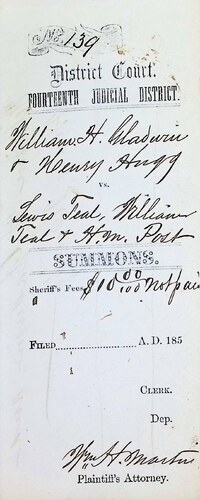 No. 139
District Court.
FOURTEENTH JUDICIAL DISTRICT.
William H. Gladwin
& Henry Hugg
vs.
Lewis Teal, William
Teal & H.M. Post
SUMMONS.
Sheriff's Fees, $10 00/100 not paid
FILED.................... A. D. 185
CLERK.
Dep.
Wm H. Martin
Plaintiff's Attorney.